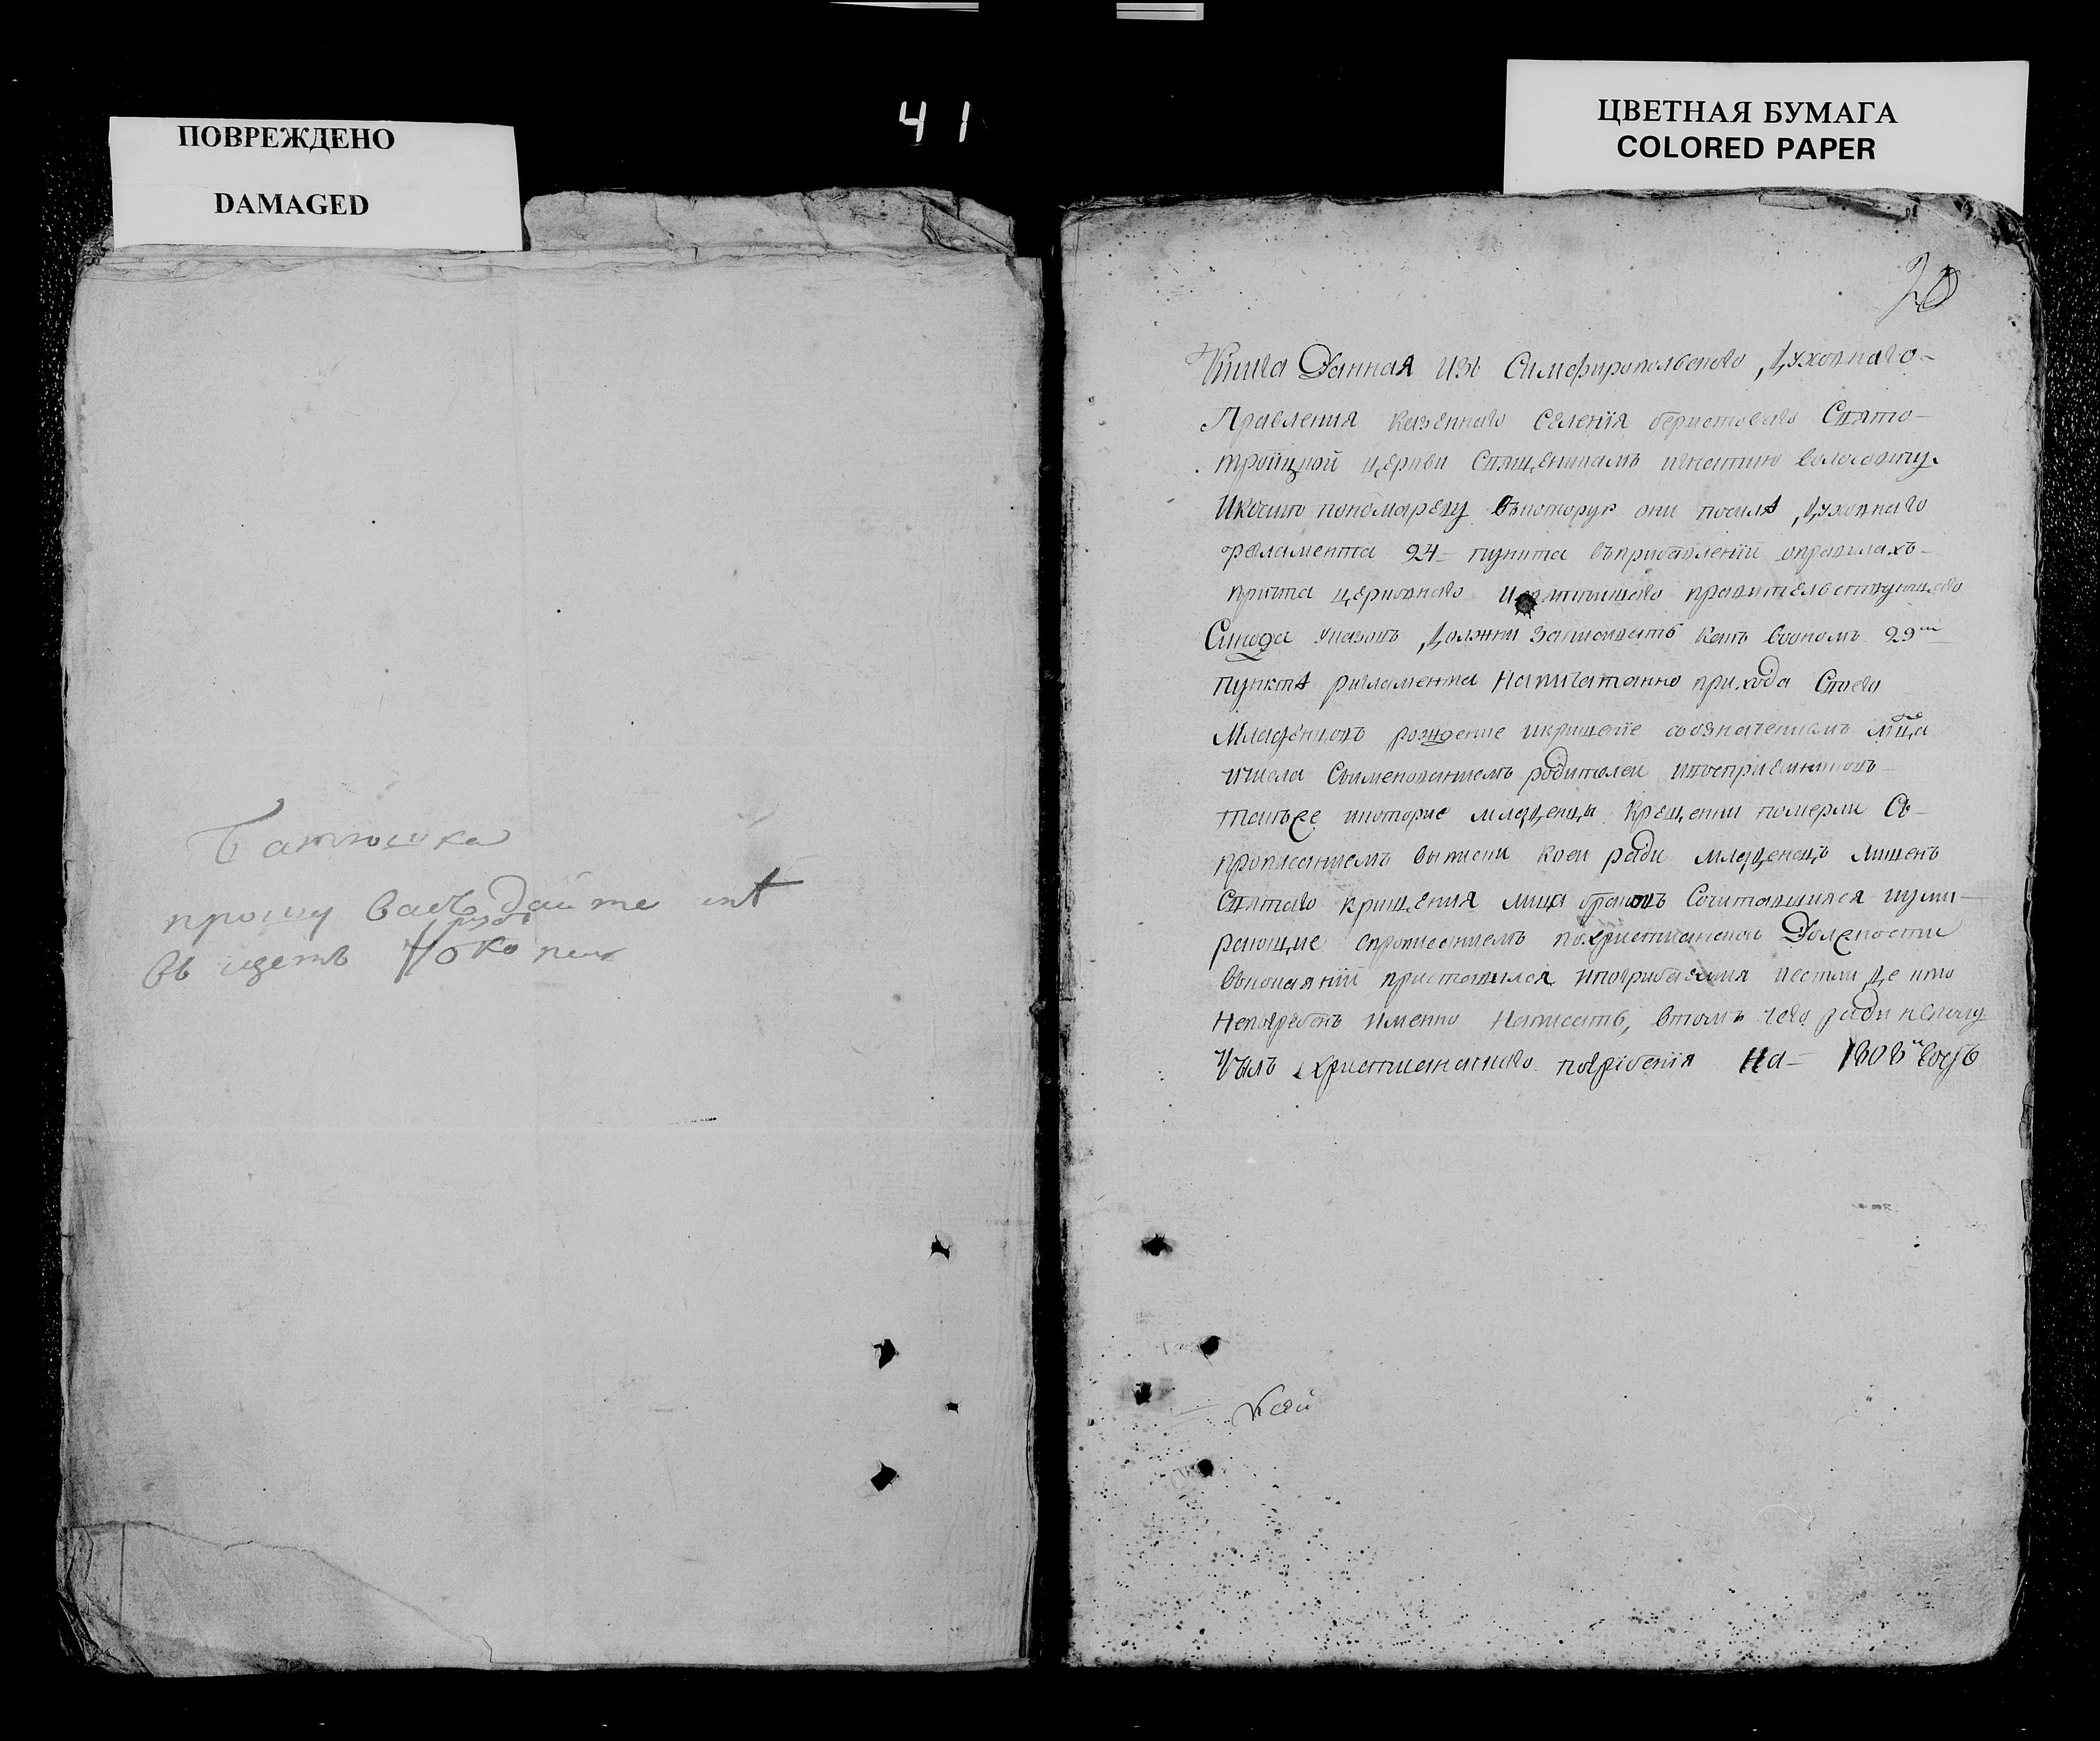 41
ПОВРЕЖДЕНО
DAMAGED
Батюшка
прошу васъ дайте мнѣ
въ щетъ руб: 40 копѣ
ЦВЕТНАЯ БУМАГА
COLORED PAPER
20
Книга Данная изъ Симферопольскаго Духовнаго
Правления казеннаго Селенїя беристоваго Свято
троицкой церкви Священикамъ игнатию
Икосмо пономареву въкоторую они посилѣ Духовнаго
регламента 24 пункта въприбавленїи оправилахъ
причта церковнаго И правительствующаго
Синода указовъ Должни Записовать какъ воономъ 29м
пунктѣ регламента Напичатанно прихода Своего
Младенцовъ рождение икрищенїе сообзначениемъ мца
ичисла Соименованиемъ родителей ивосприемниковъ
такъже икоторие младенцы Крещенни померли Съ
прописаниемъ вы коея ради младенецъ лишенъ
Святаго крищения лица бракомъ Сочитавшияся иуми
рающие спрописаниемъ похристианской Должности
Впокаянїи приставился ипогрибаемия иестли де кто
Непогрѣбенъ Именно Написать, втомъ чего ради
чилъ христианскаго погрѣбенїя На 1808й годъ
Кой